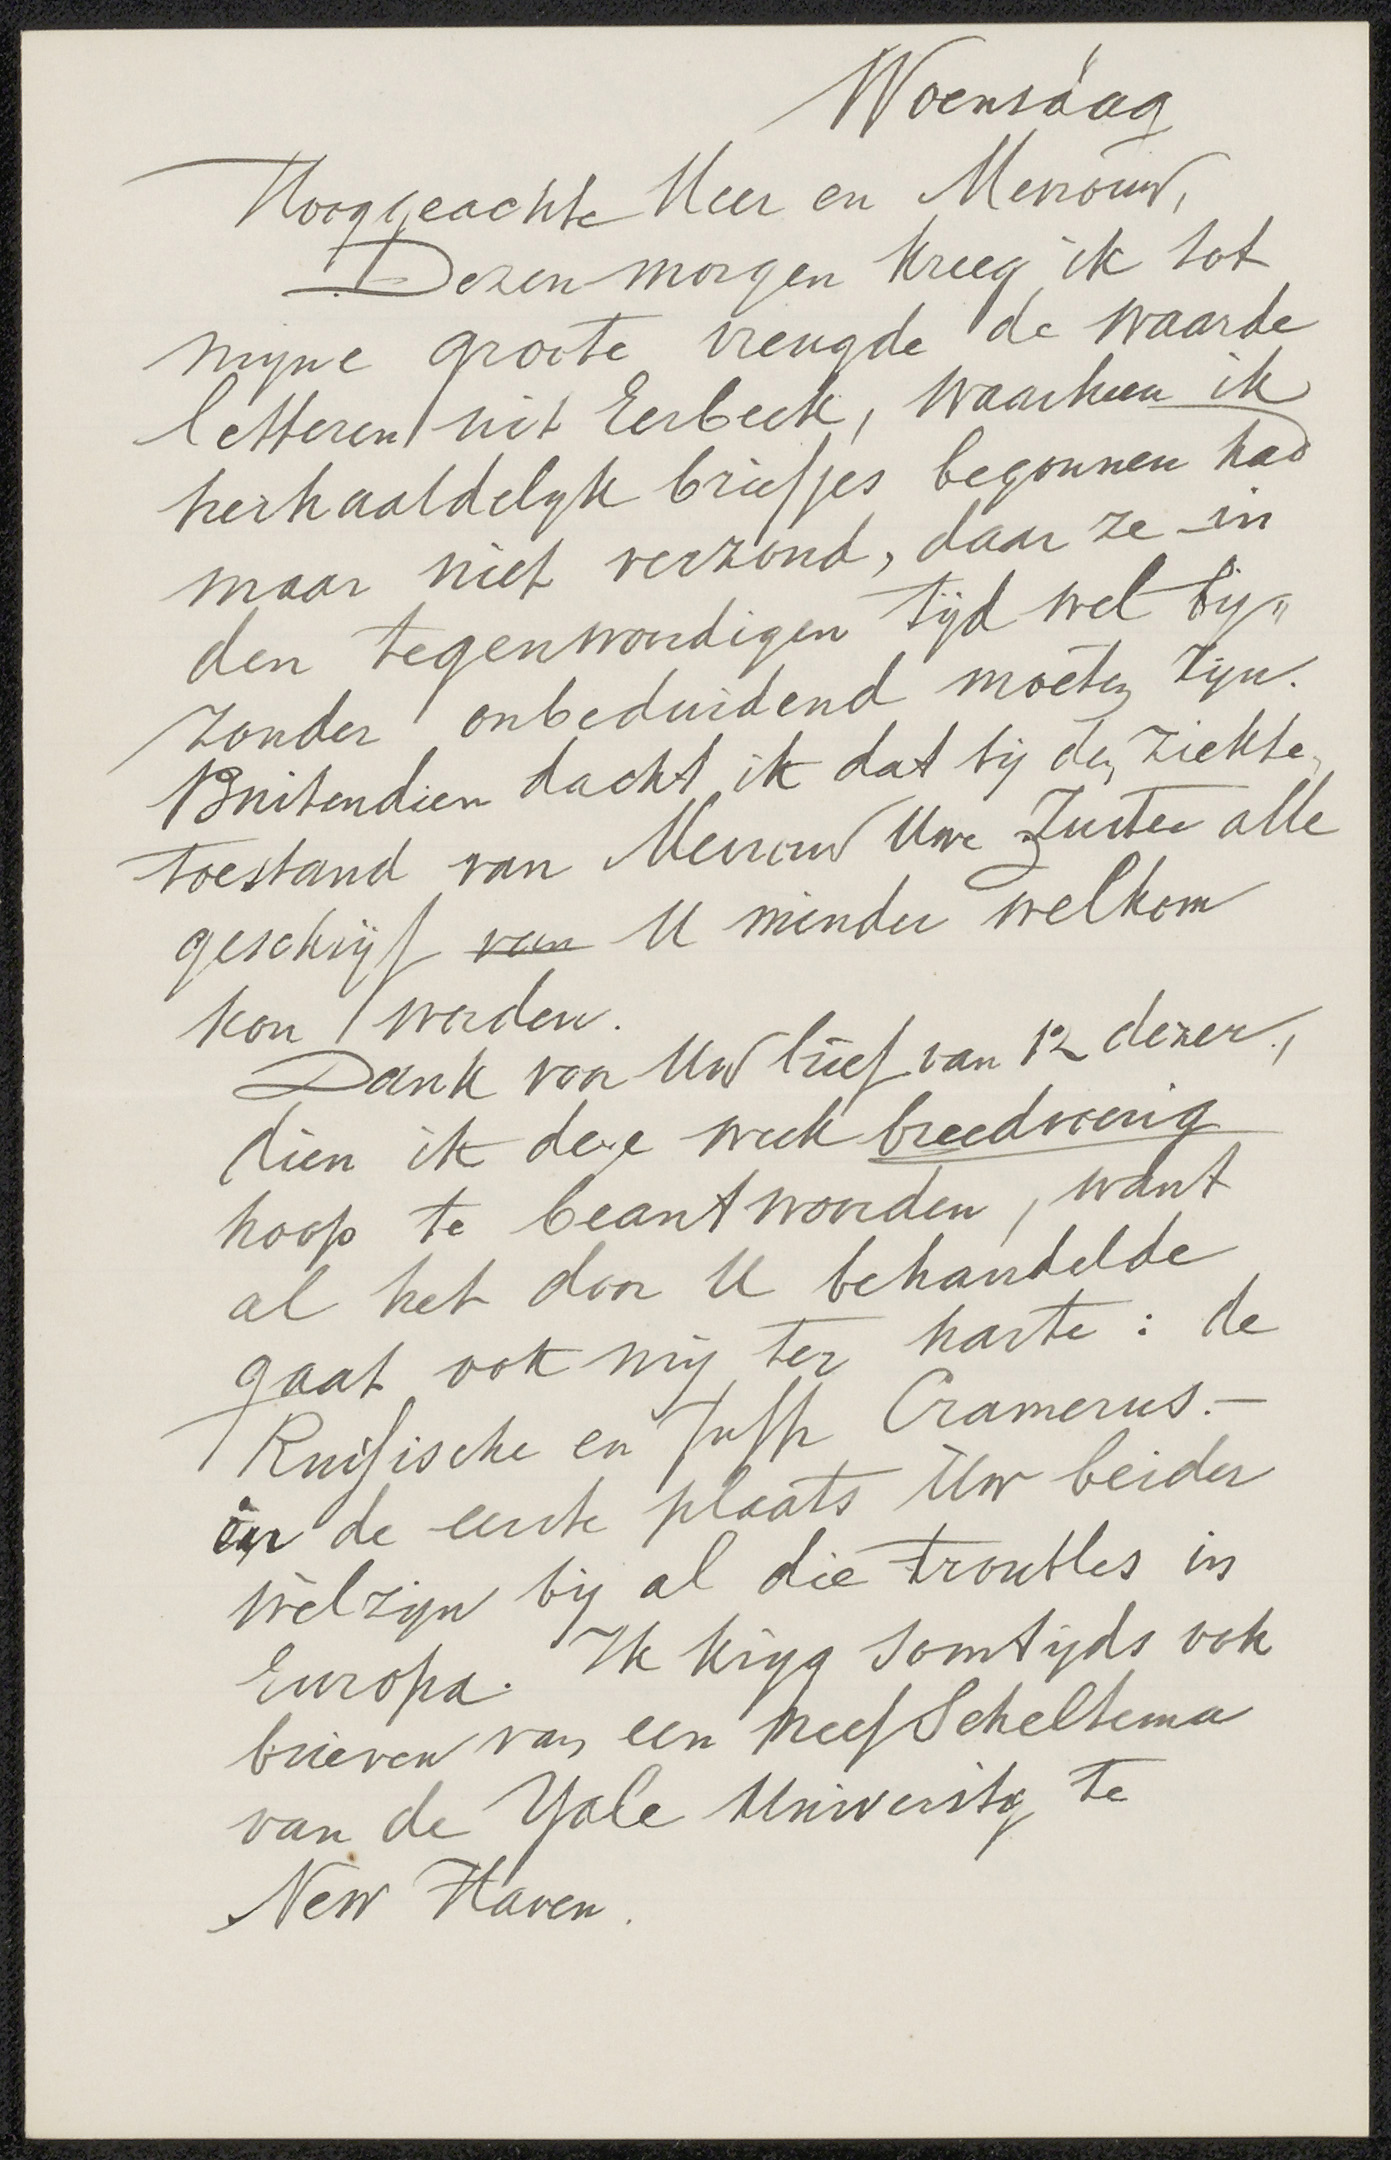 Woensdag
Hooggeachte Heer en Mevrouw,
Dezen morgen kreeg ik tot
mijne groote vreugde de waarde
letteren uit Eerbeek, waarheen ik
herhaaldelijk briefjes begonnen had
maar niet verzond, daar ze in
den tegenwoordigen tijd wel bij„
zonder onbeduidend moeten zijn.
Buitendien dacht ik dat bij den ziekte„
toestand van Mevrouw Uwe Zuster alle
geschrijf van U minder welkom
kon worden.
Dank voor Uw brief van 12 dezer,
dien ik deze week breedvoerig
hoop te beantwoorden, want
al het door U behandelde
gaat ook mij ter harte: de
Russische en Juffr Cramerus.—
in de eerste plaats Uw beider
welzijn bij al die troubles in
Europa. Ik krijg somtijds ook
brieven van een neef Scheltema
van de Yale University te
New Haven.